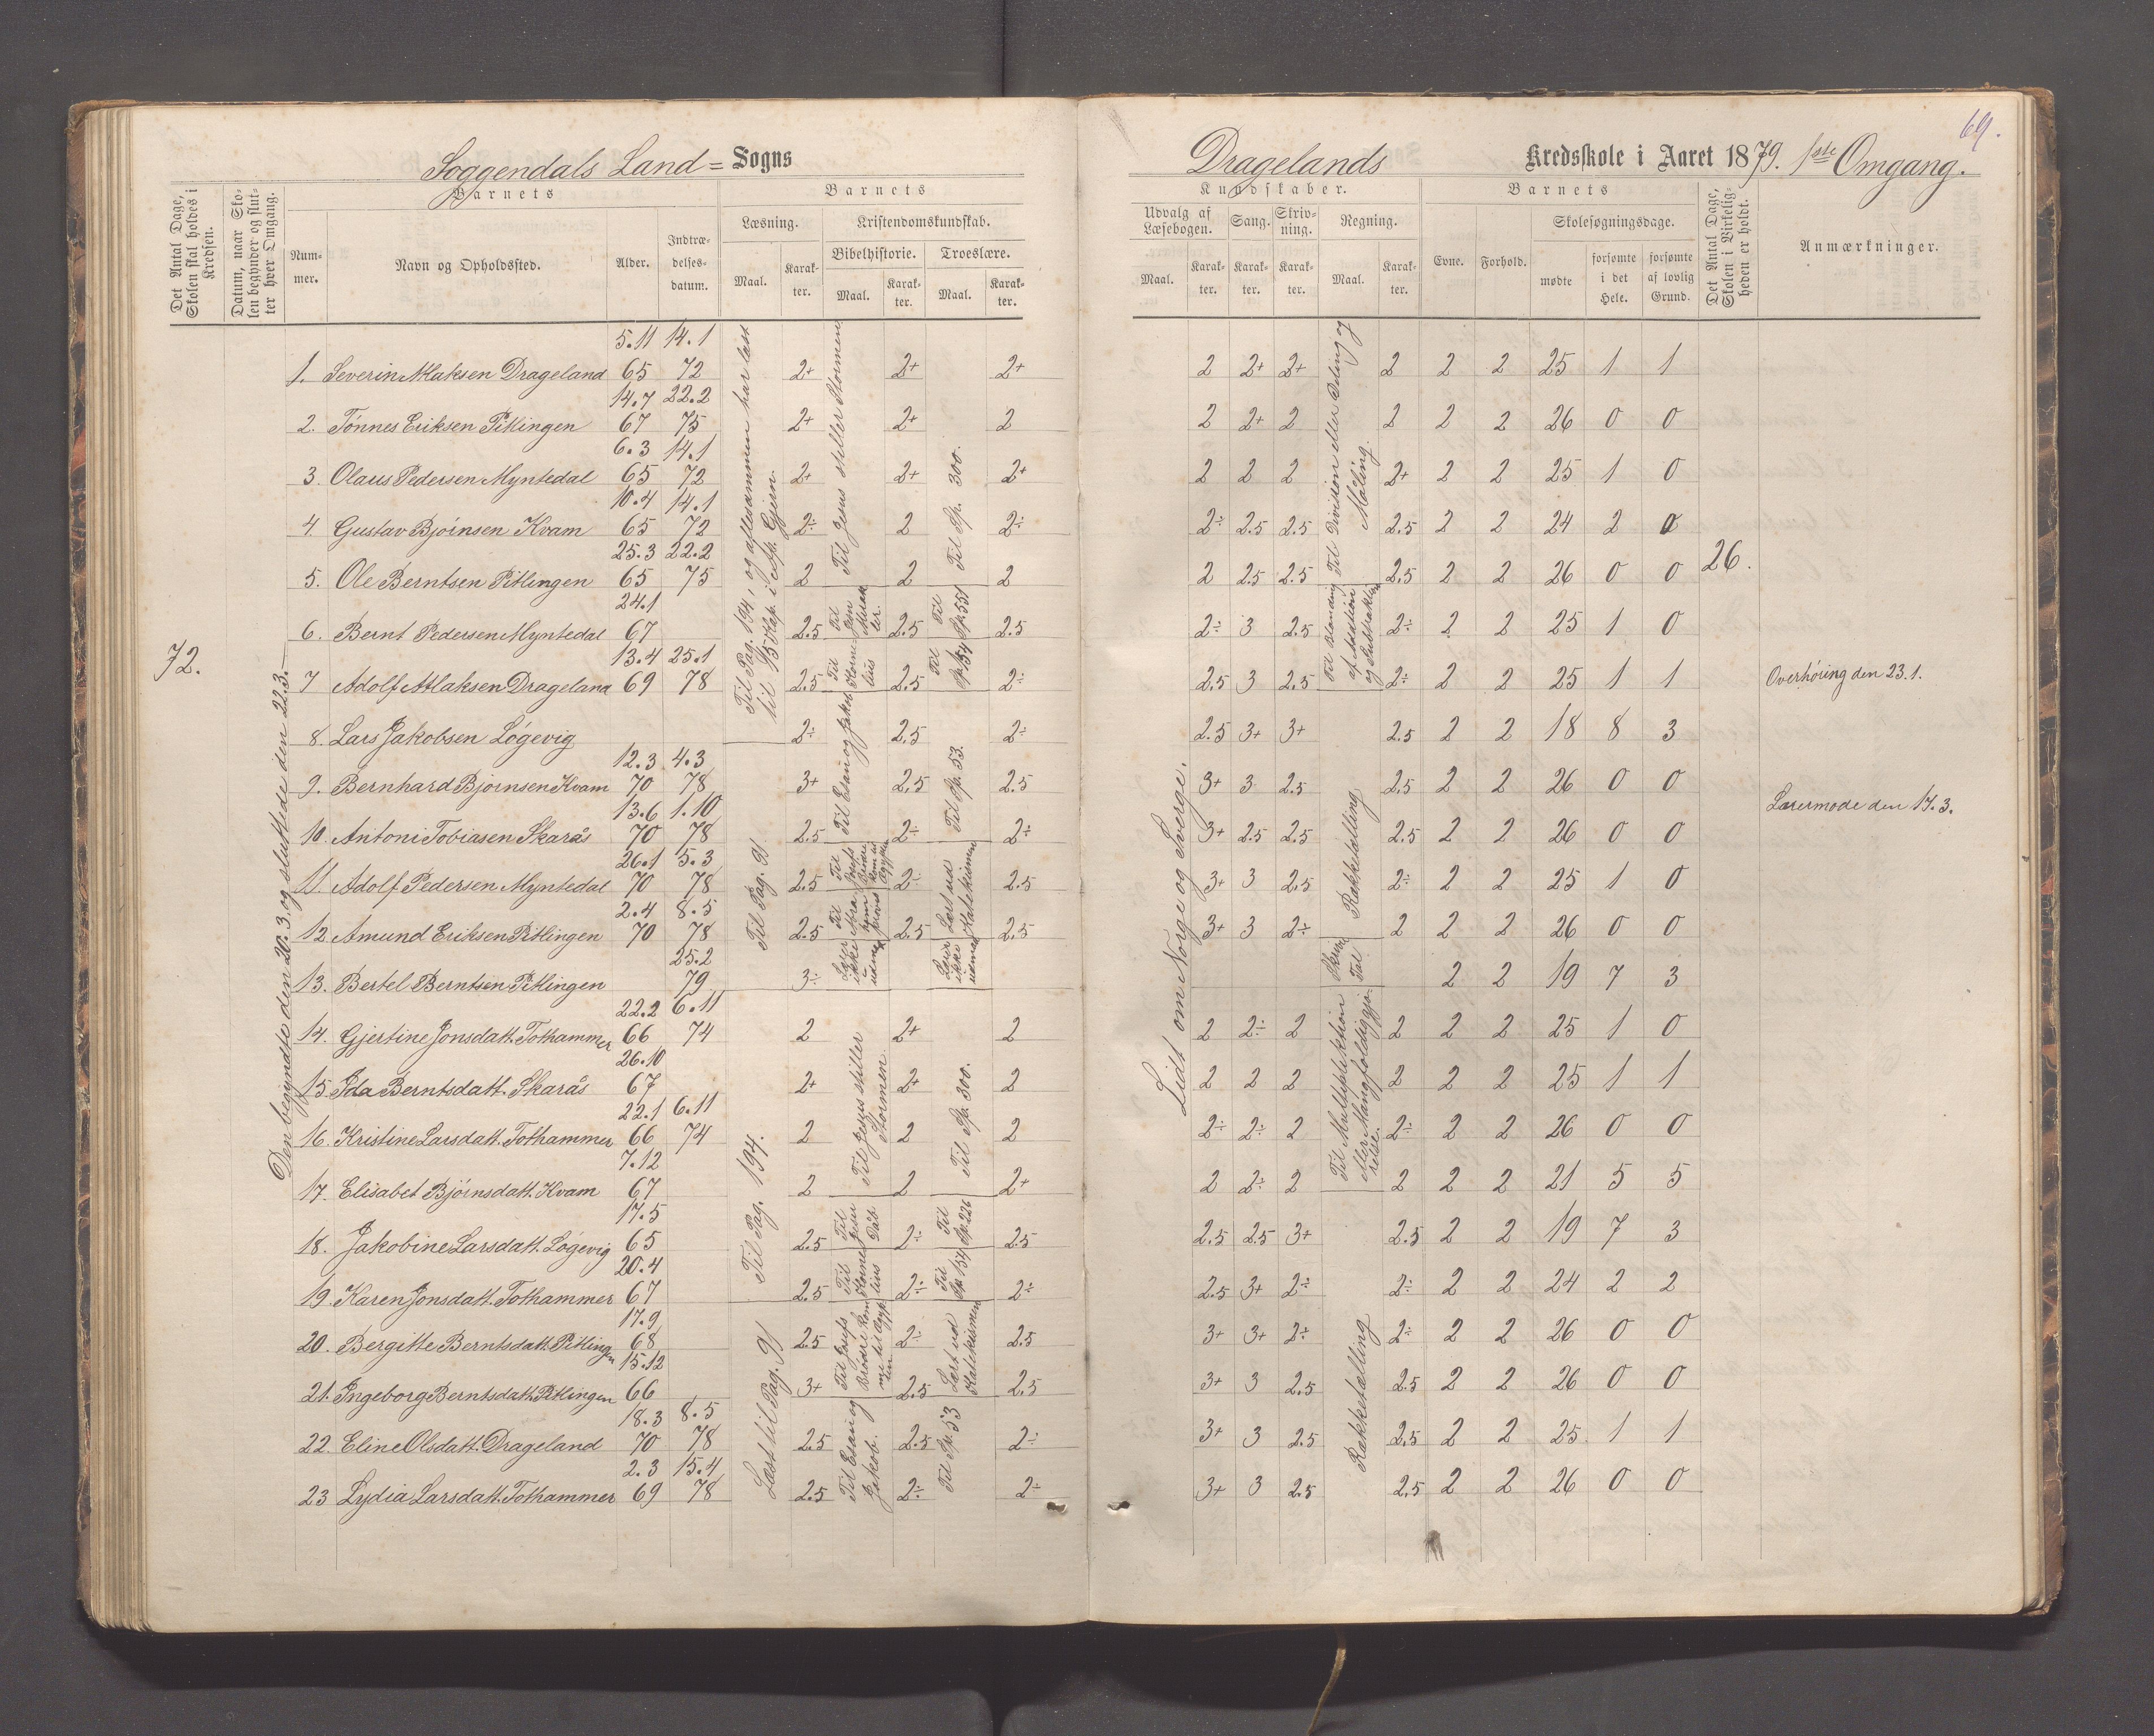 69.
Soggendals Land= Sogns
Dragelands Kredsskole i Aaret 1879. 1ste Omgang.
Det Antal Dage, Skolen skal holdes i Kredsen.
Datum, naar Skolen begynder og slutter hver Omgang.
Barnets
Nummer.
Navn og Opholdssted.
Alder.
Indtrædelsesdatum.
Barnets
Læsning.
Maal.
Karakter.
Kristendomskundskab.
Bibelhistorie.
Maal.
Karakter.
Troeslære.
Maal.
Karakter.
Kundskaber.
Udvalg af Læsebogen.
Maal.
Karakter.
Sang.
Karakter.
Skrivning.
Karakter.
Regning.
Maal.
Karakter.
Barnets
Evne.
Forhold.
Skolesøgningsdage.
mødte
forsømte i det Hele.
forsømte af lovlig Grund.
Det Antal Dage, Skolen i Virkeligheden er holdt.
Anmærkninger.
72.
Den begyndte den 20.3. og sluttede den 22.3.
1. Severin Aslaksen Drageland 5.11 65 14.1 72 2+ 2+ 2+ 2 2+ 2+ 2 2 2 25 1 1
2. Tønnes Eriksen Pitlingen 14.7 67 22.2 75 2+ 2+ 2 2 2+ 2 2 2 2 26 0 0
3. Olaus Pedersen Myntedal 6.3 65 14.1 72 2+ 2+ 2+ 2 2 2 2+ 2 2 25 1 0
4. Gustav Bjørnsen Kvam 10.4 65 14.1 72 2÷ 2 2÷ 2÷ 2.5 2.5 2.5 2 2 24 2 0
5. Ole Berntsen Pitlingen 25.3 65 22.2 75 2 2 2 2 2.5 2.5 2.5 2 2 26 0 0
26.
6. Bernt Pedersen Myntedal 24.1 67 2.5 2.5 2.5 2÷ 3 2.5 2÷ 2 2 25 1 0
7 Adolf Atlaksen Drageland 13.4 69 25.1 78 2.5 2.5 2÷ 2.5 3 2.5 2÷ 2 2 25 1 1 Overhøring den 23.1.
8. Lars Jakobsen Løgevig 2÷ 2.5 2÷ 2.5 3+ 3+ 2.5 2 2 18 8 3
9. Bernhard Bjørnsen Kvam 12.3 70 4.3 78 3+ 2.5 2.5 3+ 3 2.5 2.5 2 2 26 0 0
Lærermøde den 14.3.
10. Antoni Tobiasen Skarås 13.6 70 1.10 78 2.5 2÷ 2÷ 3+ 2.5 2.5 2.5 2 2 26 0 0
11. Adolf Pedersen Myntedal 26.1 70 5.3 78 2.5 2÷ 2.5 3+ 3 2.5 2÷ 2 2 25 1 0
12. Amund Eriksen Pitlingen 2.4 70 8.5 78 2.5 2.5 2.5 3+ 3 2÷ 2 2 2 26 0 0
13. Bertel Berntsen Pitlingen 25.2 79 3÷ 2 2 19 7 3
14. Gjertine Jonsdatt. Tothammer 22.2 66 6.11 74 2 2+ 2 2 2÷ 2 2 2 2 25 1 0
15. Ida Berntsdatt. Skarås 26.10 67 2+ 2+ 2 2 2 2 2 2 2 25 1 1
16. Kristine Larsdatt. Tothammer 22.1 66 6.11 74 2 2 2 2÷ 2÷ 2 2÷ 2 2 26 0 0
17. Elisabet Bjørnsdatt. Kvam 7.12 67 2 2 2+ 2 2÷ 2 2 2 2 21 5 5
18. Jakobine Larsdatt. Løgevig 17.5 65 2.5 2÷ 2.5 2.5 2.5 3+ 2.5 2 2 19 7 3
19. Karen Jonsdatt. Tothammer 20.4 67 2.5 2÷ 2÷ 2.5 3+ 2÷ 2÷ 2 2 24 2 2
20. Bergitte Berntsdatt. Pitlingen 17.9 68 2.5 2÷ 2.5 3+ 3+ 2÷ 2÷ 2 2 26 0 0
21. Ingeborg Berntsdatt. Pitlingen 15.12 66 3+ 2.5 2.5 3+ 3 2.5 2.5 2 2 26 0 0
22. Eline Olsdatt. Drageland 18.3 70 8.5 78 2.5 2.5 2÷ 3+ 3 2.5 2.5 2 2 25 1 1
23 Lydia Larsdatt. Tothammer 2.3 69 15.4 78 2.5 2÷ 2÷ 3+ 3 2.5 2.5 2 2 26 0 0
Til Pag. 194, og aflesammen har læst
til 15 Kap. i Ap. Gjern.
Til Pag. 91
Til Pag. 194.
Læst til Pag. 91
Til Jesus stiller Stormen
Til Kornelius
Til Esau og Jakob
Lær ikke udenad
Til Jesus stiller Stormen.
Til Jesu Dåb.
Til Kornelius
Til Josefs Brødre komme til Ægypten
Til Esau og Jakob.
Til Sp. 300.
Til Sp. 551
Til Sp. 154
Til Sp. 53.
Læst ud Katekismen
Lær ikke udenad
Til Sp. 300.
Til Sp. 226
Til Sp. 154
Læst ud Katekismen
Til Sp. 53
Lidt om Norge og Sverge.
Til Division eller Deling og Måling.
Til Blanding af Addition og Subtraktion
Rækketælling
Skrive Tal
Til Multiplikktion eller Mangfoldiggjørelse.
Rækketælling